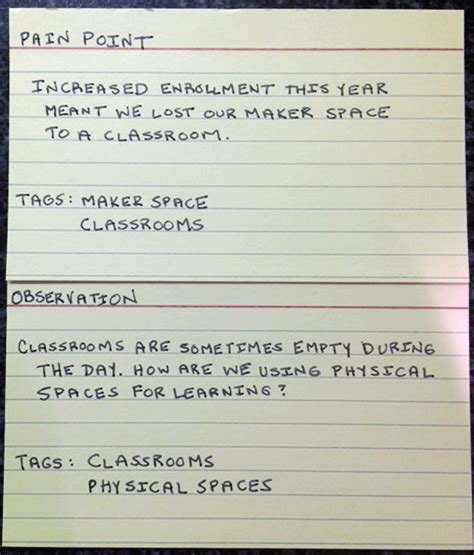 PAIN POINT
INCREASED ENROLLMENT THIS YEAR
MEANT WE LOST OUR MAKER SPACE
TO A CLASSROOM.
TAGS: MAKER SPACE
CLASSROOMS
OBSERVATION
CLASSROOMS ARE SOMETIMES EMPTY DURING
THE DAY. HOW ARE WE USING PHYSICAL
SPACES FOR LEARNING?
TAGS: CLASSROOMS
PHYSICAL SPACES